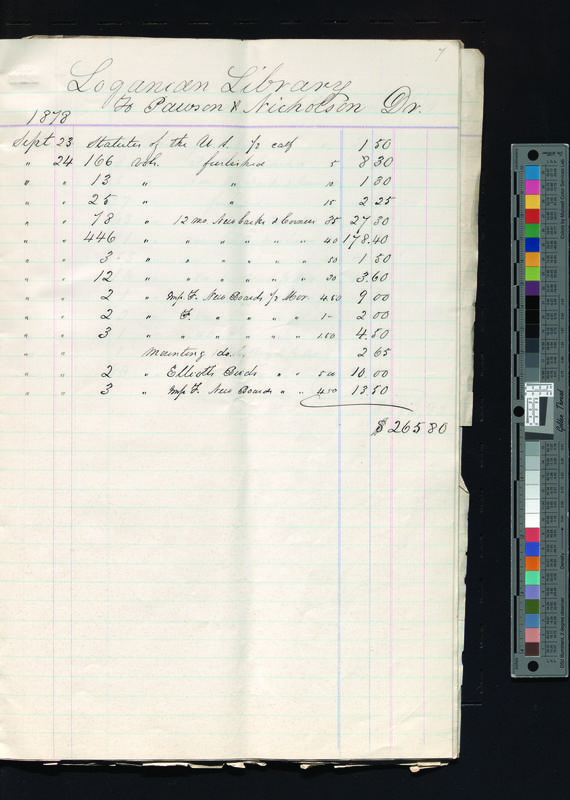 7
Loganian Library
To Pawson & Nicholson Dr.
1878
Sept 23 Statutes of the U.S. 1/2 calf 1 50
" 24 166 vols. furbished 5 8 30
" " 13 " " 10 1 30
" " 25 " " 15 2 25
" " 78 " 12mo New backs & Corners 35 27 30
" " 446 " " " " " " 40 178.40
" " 3 " " " " " " 50 1 50
" " 12 " " " " " " 30 3.60
" " 2 " Imp. F. New Boards 1/2 Mor. 4.50 9 00
" " 2 " F. " " " " 1- 2 00
" " 3 " " " " " 1.50 4.50
" " Mounting do. 2 65
" " 2 " Elliotts Birds " " 5 00 10 00
" " 3 " Imp F. New Boards " " 4 50 13.50
$ 265 80